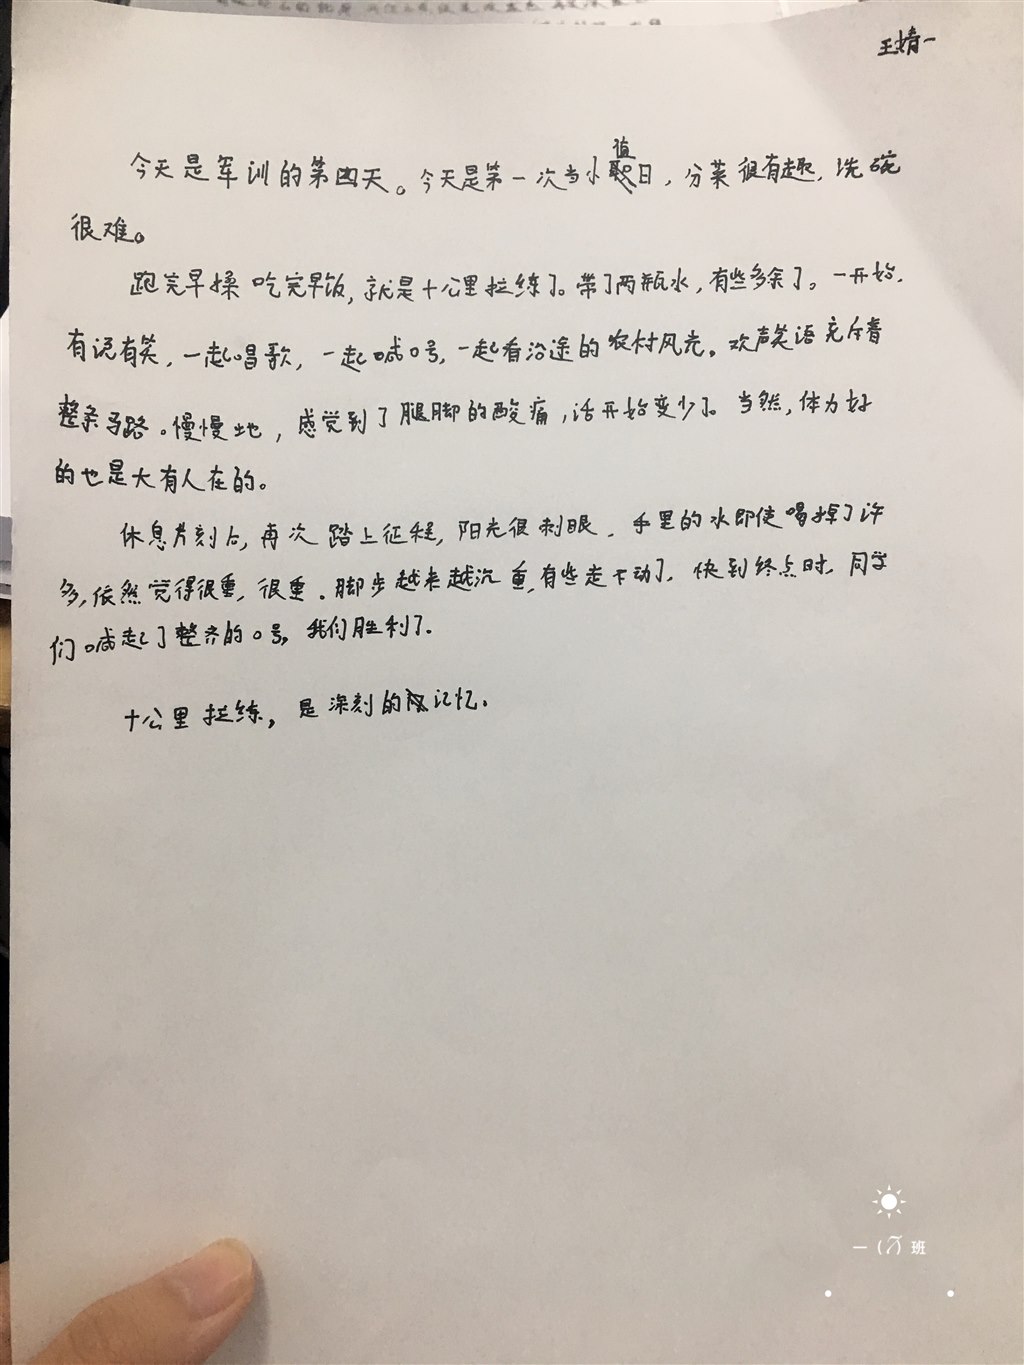 王婧一
今天是军训的第四天。今天是第一次当小值日，分菜很有趣，洗碗
很难。
跑完早操 吃完早饭，就是十公里拉练了。带了两瓶水，有些多余了。一开始，
有说有笑，一起唱歌，一起喊口号，一起看沿途的农村风光。欢声笑语充斥着
整条马路。慢慢地，感觉到了腿脚的酸痛，话开始变少了。当然，体力好
的也是大有人在的。
休息片刻后，再次踏上征程，阳光很刺眼，手里的水即使喝掉了许
多，依然觉得很重，很重。脚步越来越沉重，有些走不动了，快到终点时，同学
们喊起了整齐的口号，我们胜利了。
十公里拉练，是深刻的记忆。
一(7)班